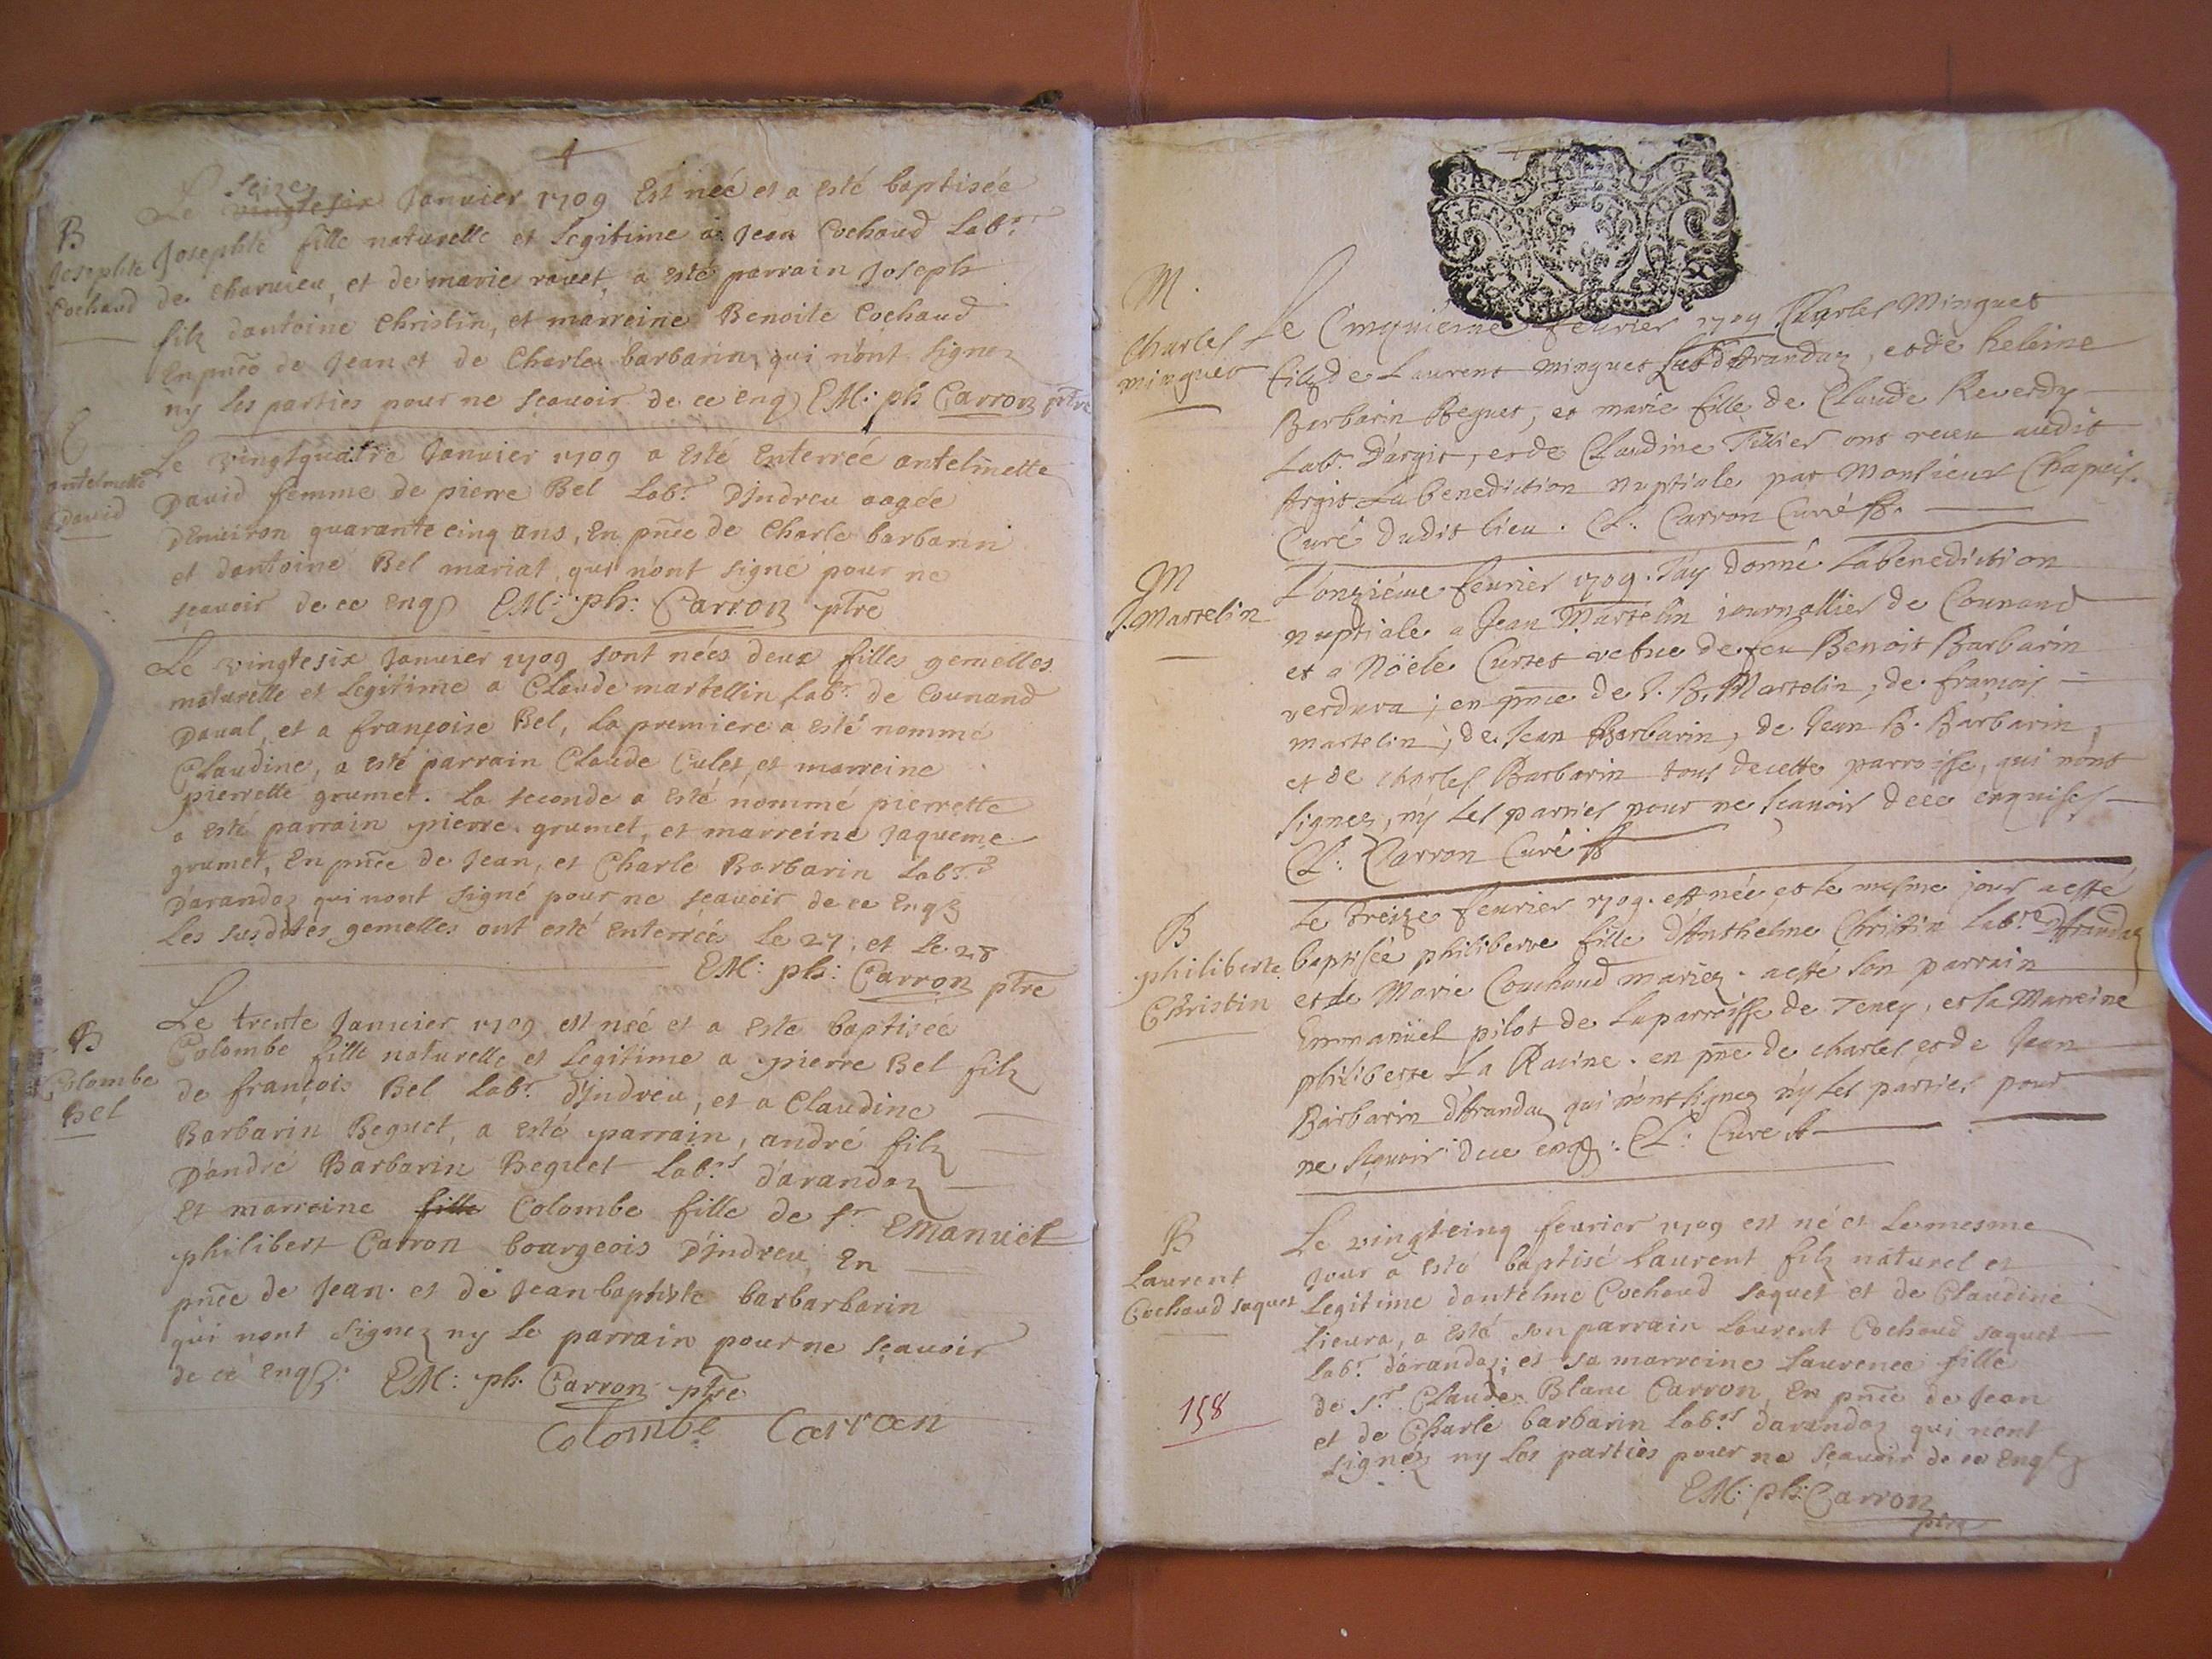 Le seize vingtesix Janvier 1709 Est neé et a Esté baptisée
B
Josephte
Cochaud
Josephte fille naturelle et Legitime a Jean Cochaud Labr
de charvieu, et de marie ravet, a esté parrain Joseph
filz dantoine Christin, et marreine Benoite Cochaud
En pnce de Jean et de Charles barbarin qui n'ont signez
ny les parties pour ne sçavoir de ce enq EM: ph Carron ptre
antelmette
David
Le vingtquatre Janvier 1709 a Esté Enterrée antelmette
David femme de pierre Bel Labr D'Indreu aagée
D'Environ quarante cinq ans, En pnce de Charle barbarin
et dantoine Bel mariat, qui n'ont signé pour ne
sçavoir de ce enq EM: ph: Carron ptre
Le vingtesix Janvier 1709 sont nées deux filles gemelles
naturelle et Legitime a Claude martellin Labr de Counand
Daval, et a françoise Bel, La premiere a esté nommé
Claudine, a esté parrain Claude Culet, et marreine
pierrette grumet. La seconde a esté nommé pierrette
a esté parrain pierre grumet, et marreine Jaqueme
grumet, En pnce de Jean, et Charle Barbarin Labrs
D'arandaz qui nont signé pour ne sçavoir de ce Enqz
Les susdites gemelles ont esté Enterrées Le 27, et Le 28
EM: ph: Carron ptre
B
Colombe
Bel
Le trente Janvier 1709 est neé et a Esté baptiseé
Colombe fille naturelle et Legitime a pierre Bel filz
de françois Bel Labr d'Indreu, et a Claudine
Barbarin Beguet, a esté parrain, andré filz
D'andré Barbarin Beguet Labr d'arandaz
Et marreine fille Colombe fille de sr Emanuël
philibert Carron bourgeois D'Indreu, En
pnce de Jean. et de Jean baptiste barbarbarin
qui nont signez ny Le parrain pour ne sçavoir
de ce enqz. EM: ph. Carron ptre
Colombe Carron
M.
Charles
minguet
Le Cinquiéme fevrier 1709 Charles Minguet
filz de Laurent minguet Labr d'Arandaz, et de heleine
Barbarin Beguet, et marie fille de Claude Reverdy
Labr. D'argit, et de Claudine Tillier ont receu audit
Argit La benediction nuptiale par Monsieur Chapuis.
Curé dudit lieu. Cl. Carron Curé
M
J. Martelin
L'onziéme fevrier 1709. J'ay donné La benediction
nuptiale a Jean Martelin journallier de Counand
et a Nöele Curtet vefve de feu Benoit Barbarin
verdura; en pnce de J. B. Martelin, de françois
martelin, de Jean Barbarin, de Jean B. Barbarin,
et de charles Barbarin tous de cette parroisse, qui n'ont
signez, ny Les parties pour ne sçavoir de ce enquises
Cl: Carron Curé
B
philiberte
Christin
Le Treize fevrier 1709. est née et le mesme jour a esté
baptisée philiberte fille d'Anthelme Christin Labr D'Arandaz
et de Marie Couchaud mariez. a esté son parrain
Emmanüel pilot de La parroisse de Teney, et la Marreine
philiberte La Racine. en pnce de charles et de Jean
Barbarin d'Arandaz qui n'ont signez n'y Les parties pour
ne sçavoir de ce enqz: Cl: Curé
B
Laurent
Cochaud saquet
Le vingtcinq fevrier 1709 est né et Le mesme
Jour a esté baptisé Laurent filz naturel et
Legitime dantelme Cochaud saquet et de Claudine
Lieura, a esté son parrain Laurent Cochaud saquet
Labr d'arandaz; et sa marreine Laurence fille
de sr Claude Blanc Carron, En pnce de Jean
et de Charle barbarin Labrs d'arandaz qui n'ont
signéz ny Les parties pour ne sçavoir de ce Enqz
158
EM: ph: Carron
ptre